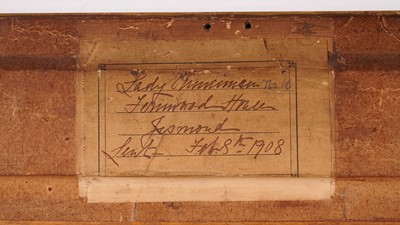 Lady Runciman
Fernwood House
Jesmond
Sent Feb 8th 1908